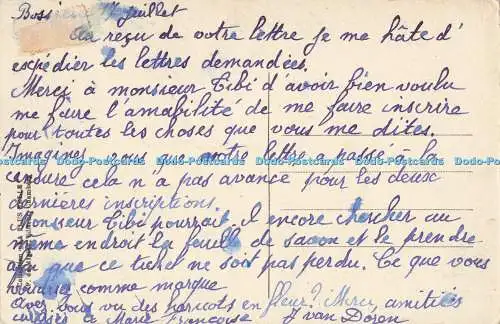 Juillet
Au reçu de votre lettre je me hâte d'
expédier les lettres demandées.
Merci à monsieur Tibi d'avoir bien voulu
me faire l'amabilité de me faire inscrire
pour toutes les choses que vous me dites.
Imaginez vous que votre lettre a passé à la
censure cela n'a pas avancé pour les deux
dernières inscriptions.
Monsieur Tibi pourrait il encore chercher au
même endroit la feuille de savon et le prendre
afin que ce ticket ne soit pas perdu. Ce que vous
voudrez comme marque
Avez vous vu des haricots en fleur? Merci, amitiés
à Marie Françoise J van Doren
Dodo-Postcards Dodo-Postcards Dodo-Postcards Dodo-Postcards Dodo-Postcards